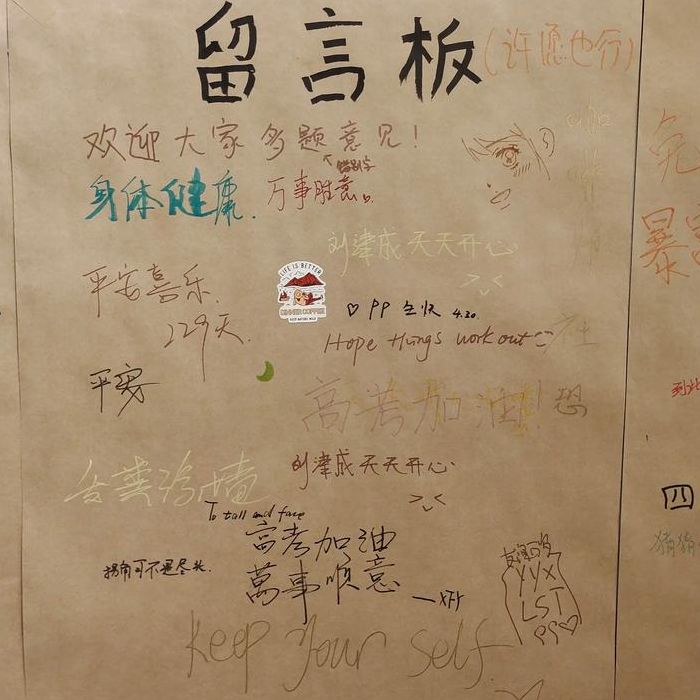 留言板
(许愿也行)
欢迎大家多题意见!
错别字
身体健康.
万事胜意。
刘津成天天开心
平安喜乐.
229天.
LIFE IS BETTER
DINNER COFFEE
♡ PP 生快 4.20
Hope things work out
平安
高考加油!
恐
刘津成天天开心.
To tall and face
高考加油
萬事順意
拐角可不是尽头.
YYX
LST
PP♡
keep Your self.
暴
到此
四